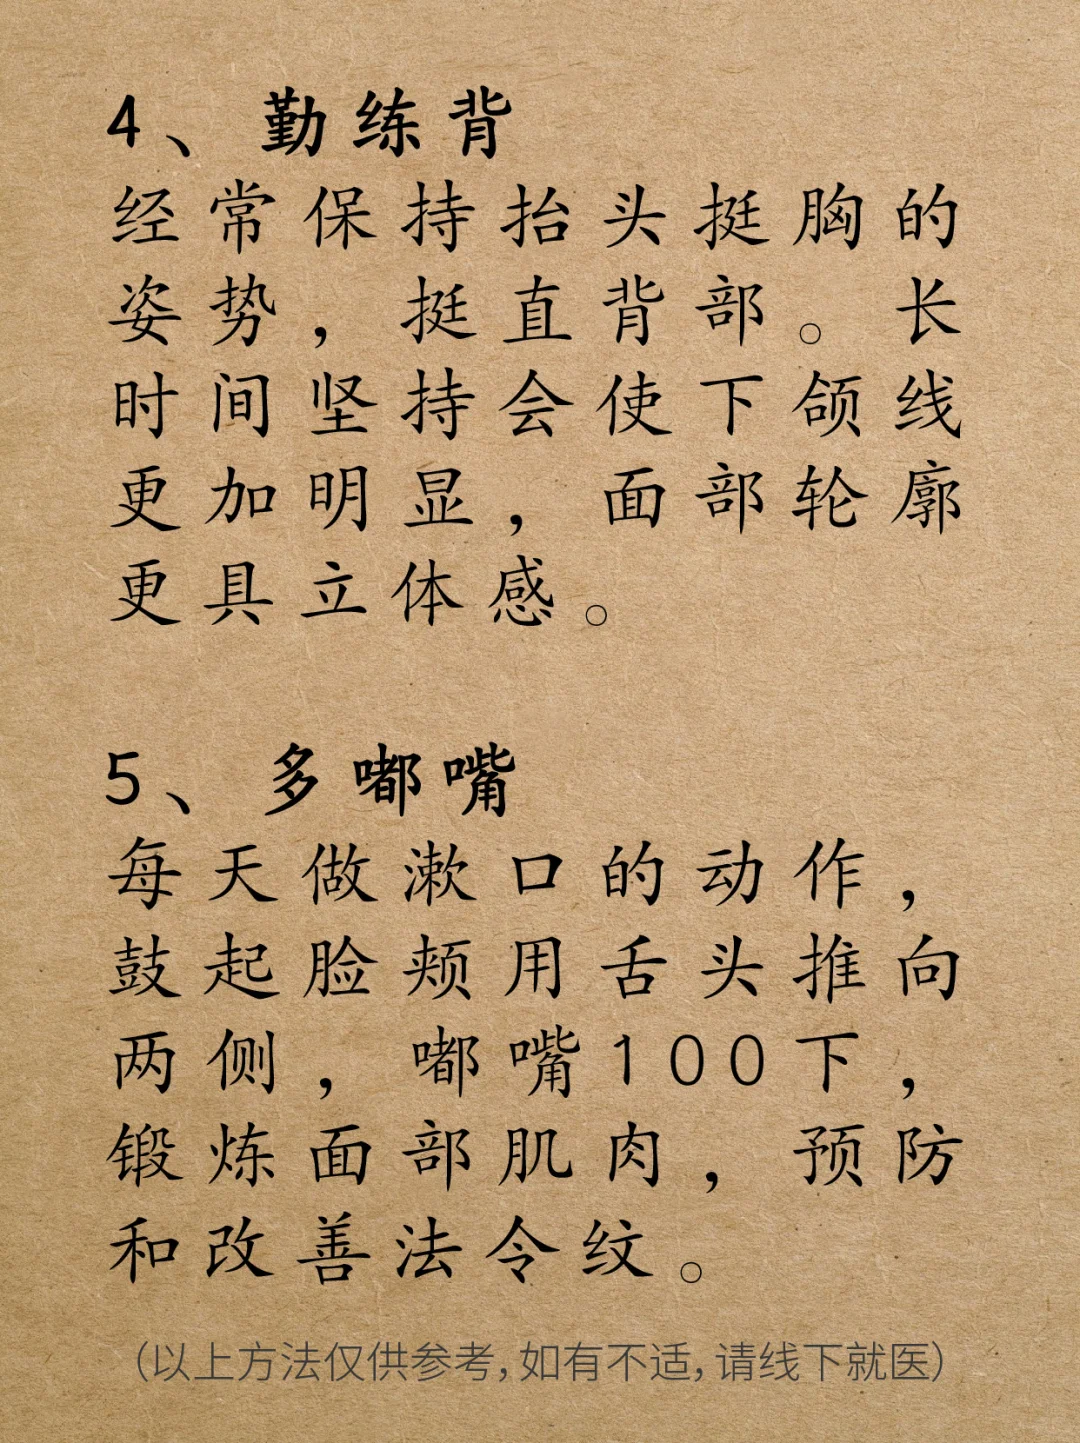 4、勤练背
经常保持抬头挺胸的
姿势，挺直背部。长
时间坚持会使下颌线
更加明显，面部轮廓
更具立体感。
5、多嘟嘴
每天做漱口的动作，
鼓起脸颊用舌头推向
两侧，嘟嘴100下，
锻炼面部肌肉，预防
和改善法令纹。
（以上方法仅供参考，如有不适，请线下就医）